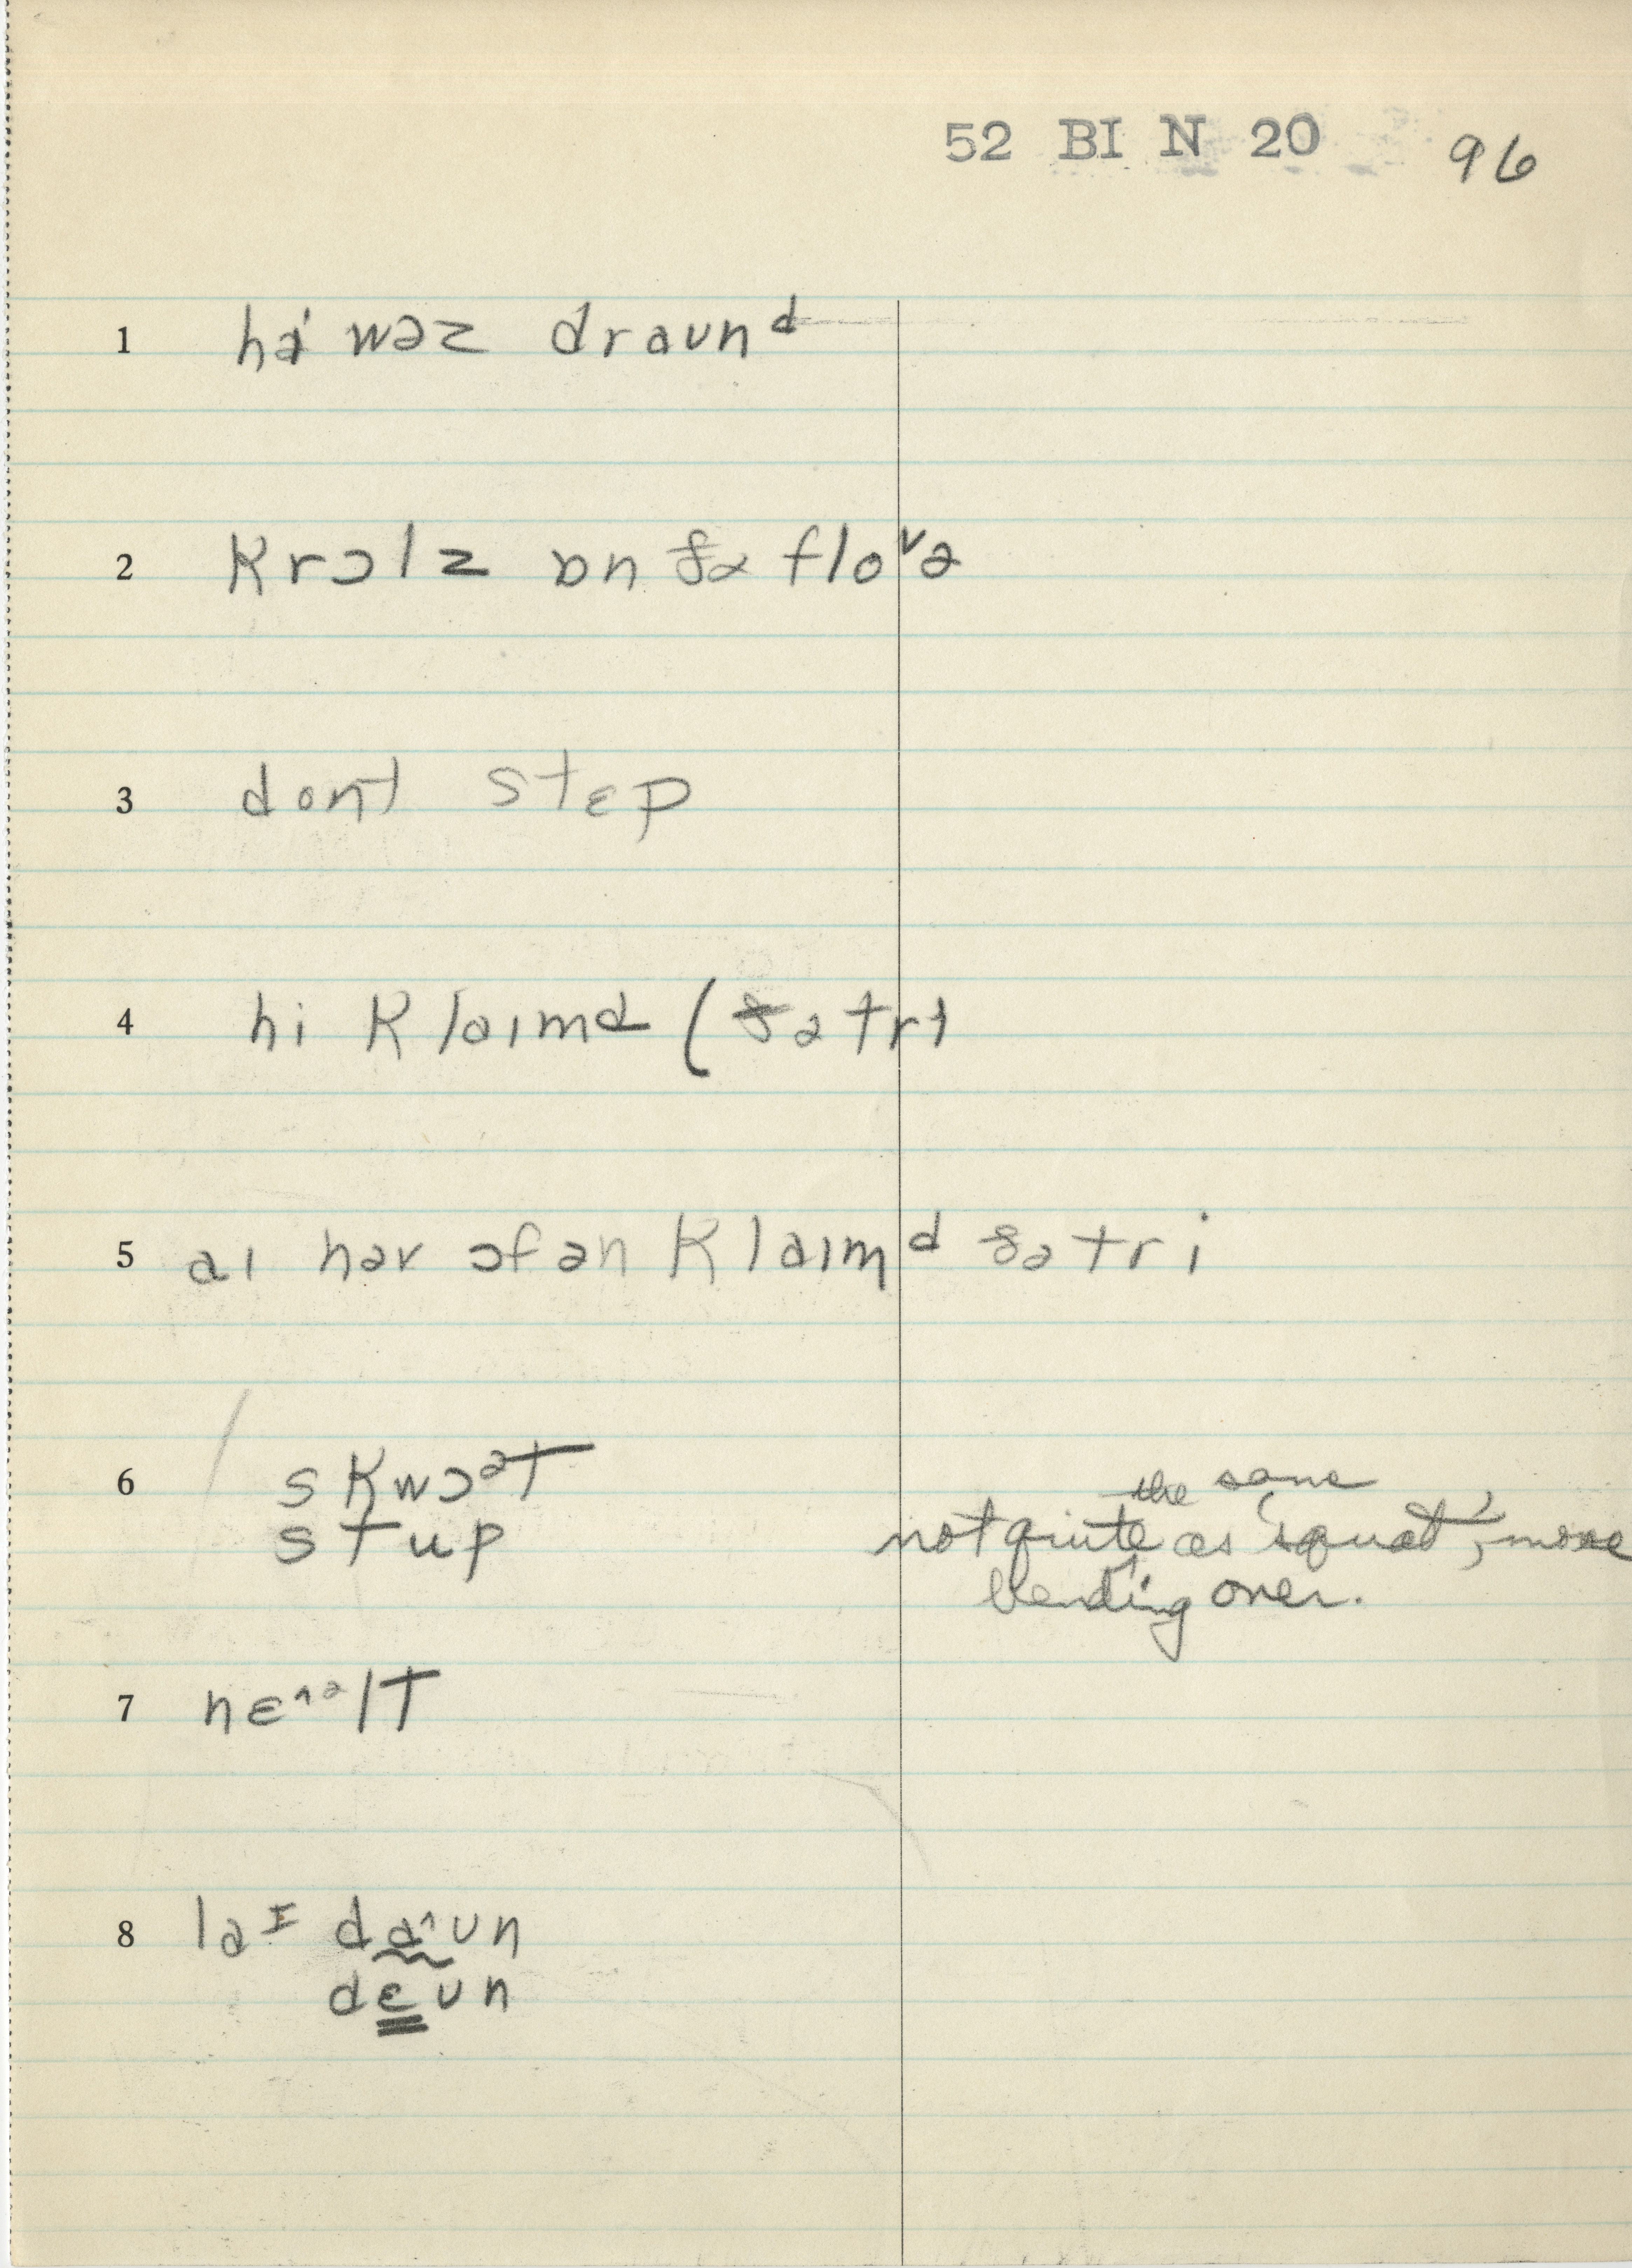 52 BI N 20 96
1 hi wəz draund
2 krɔlz ɒn ðə floᵛə
3 dont stɛp
4 hi klaɪmd (ðə tri
5 aɪ hav ɔfən klaɪmᵈ ðə tri
6 skwɔᵊt
the same
stup not quite as 'squat', more
bending over.
7 nɛ^ᵊlt
8 laɪ da^ʊn
dɛʊn